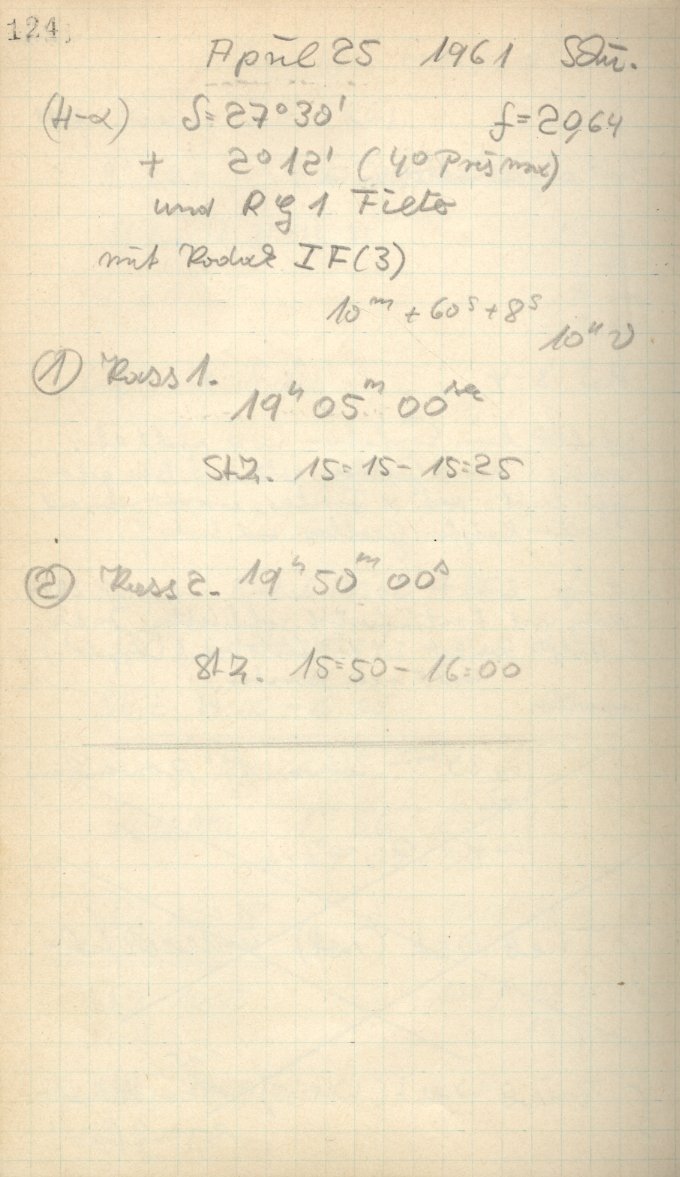 124.
April 25 1961 Schü.
(H-α) δ=27°30' f=2064
+ 2°12' (4° Prisma)
und RG1 Filter
mit Kodak IF(3)
10ᵐ + 60ˢ + 8ˢ
① Kass 1.
19ʰ 05ᵐ 00ˢᵉᶜ
StZ. 15:15 - 15:25
② Kass 2. 19ʰ 50ᵐ 00ˢ
StZ. 15:50 - 16:00